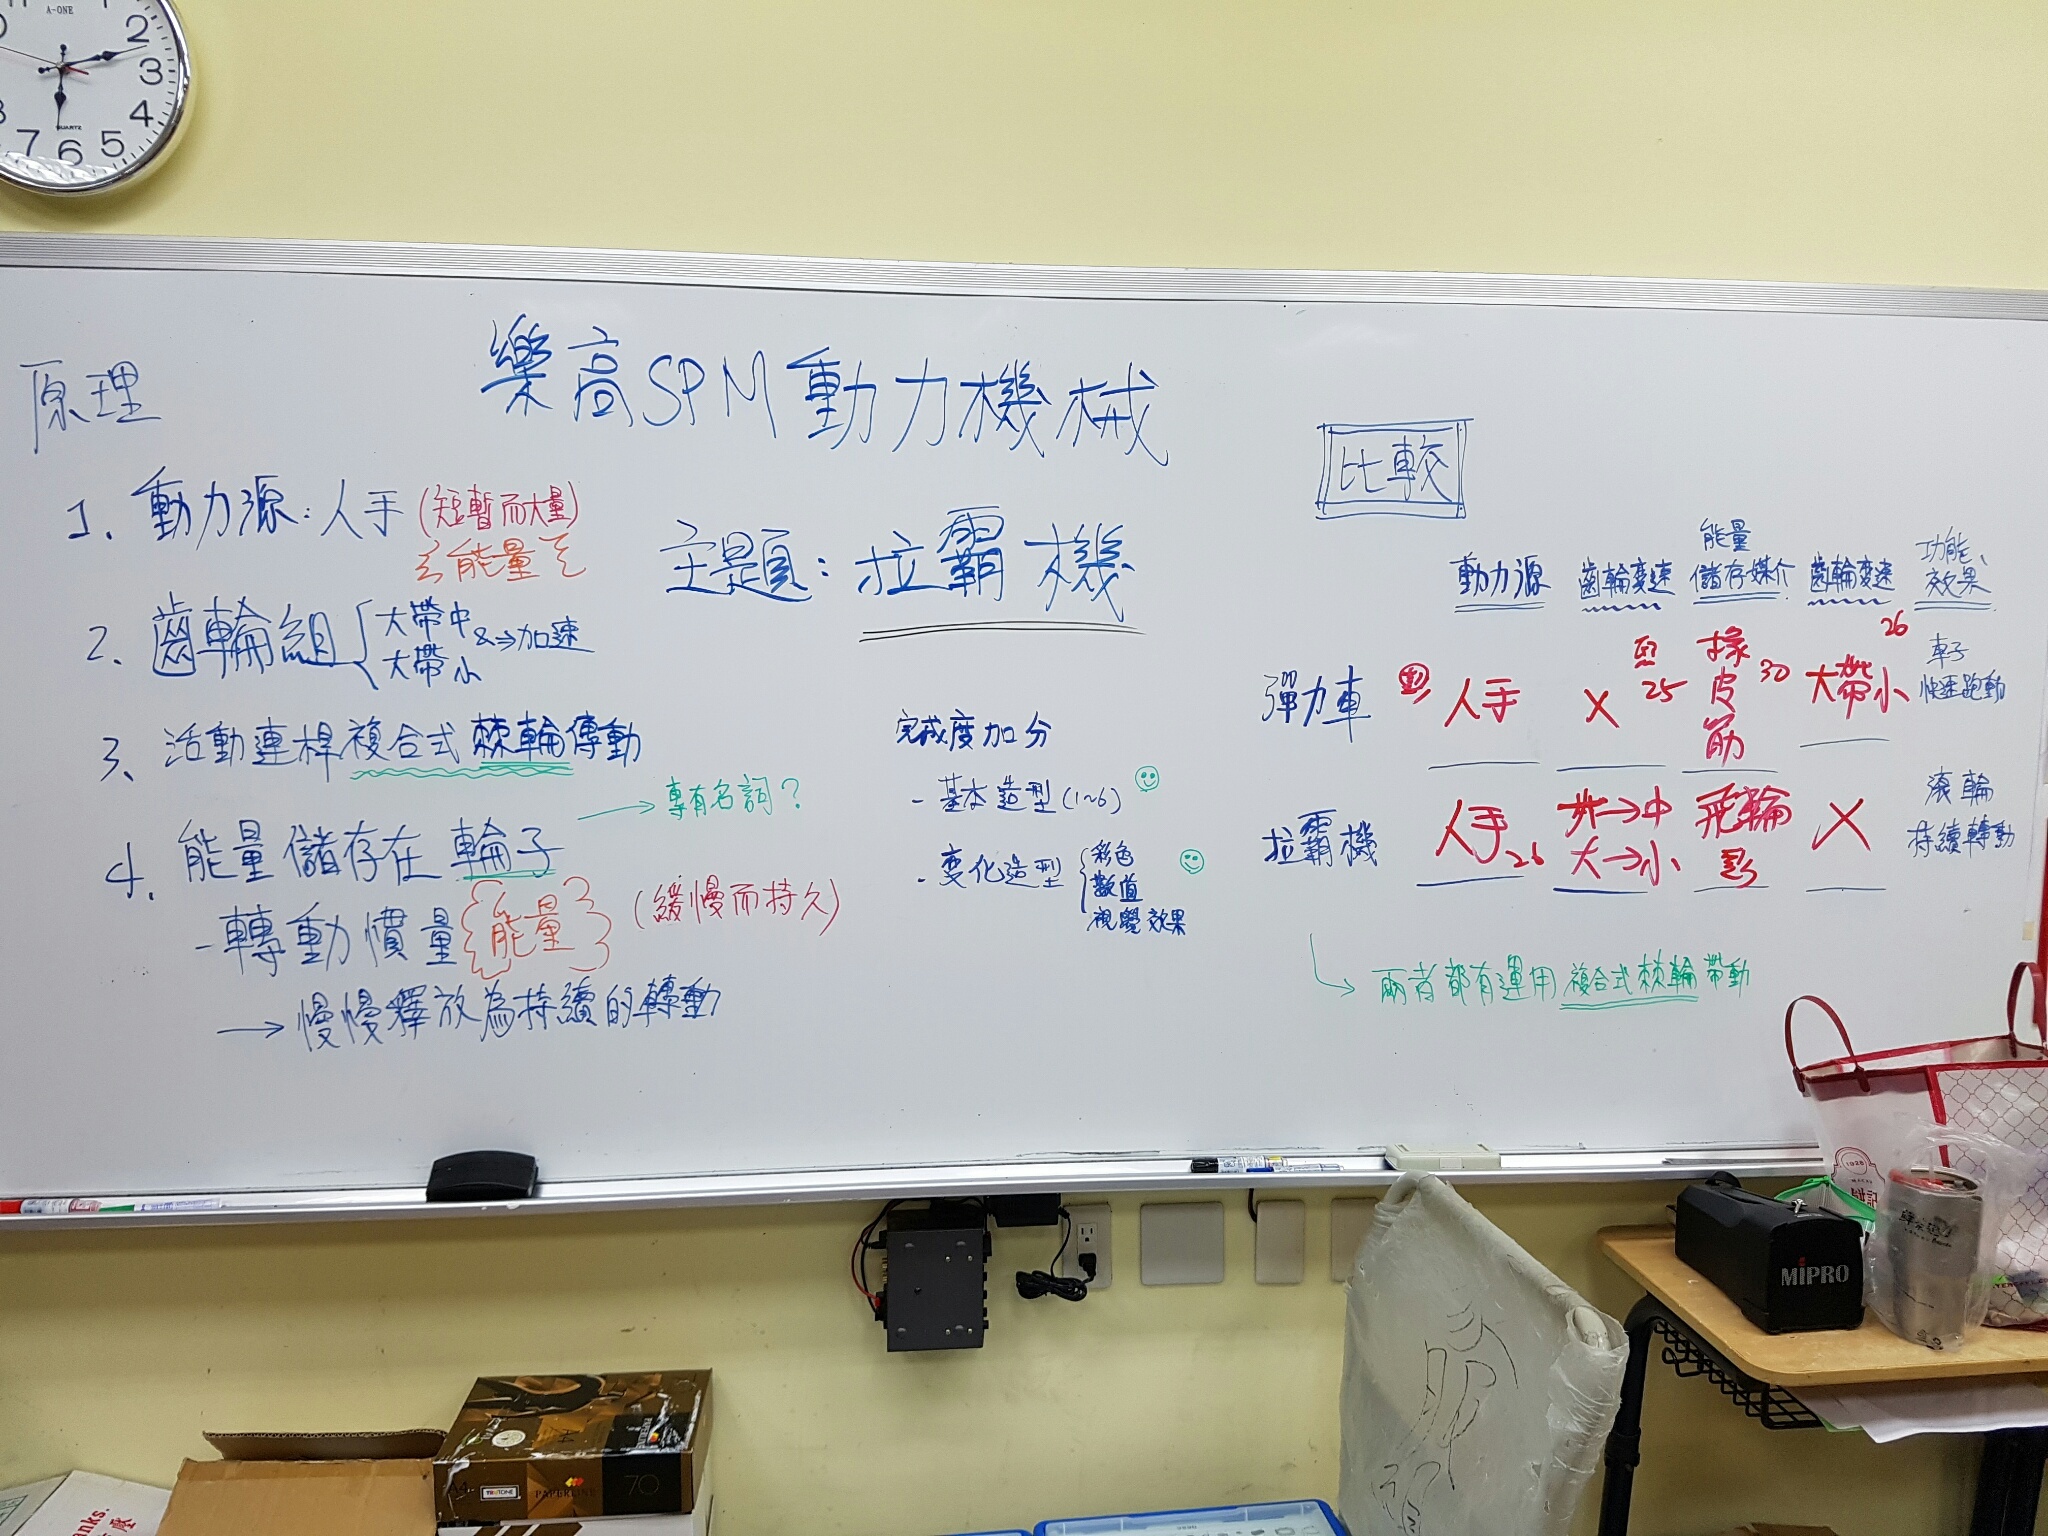 A-ONE
2
3
4
5
6
7
QUARTZ
樂高SPM動力機械
主題：拉霸機
原理
1. 動力源：人手(短暫而大量)
能量
2. 齒輪組 大帶中 &⇒加速
大帶小
3、活動連桿複合式棘輪傳動
→專有名詞？
4. 能量儲存在輪子
-轉動慣量 能量 (緩慢而持久)
→慢慢釋放為持續的轉動
完成度加分
- 基本造型(1~6)
- 变化造型 彩色
數值
視覺效果
比較
動力源 齒輪变速 能量儲存媒介 齒輪变速 功能、效果
彈力車 人手 X 25 橡皮筋 30 大帶小 26 車子快速跑動
拉霸機 人手 26 大→中 飛輪 X 滾輪持續轉動
大→小
兩者都有運用複合式棘輪帶動
MIPRO
1928
A4
TRUTONE
PAPERLINE
70